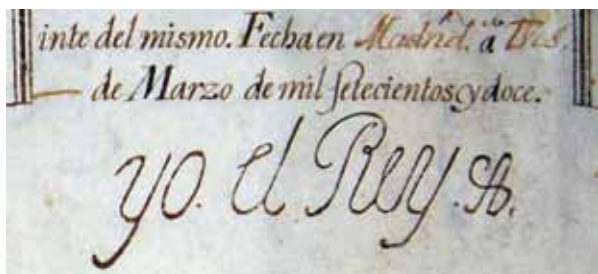 inte del mismo. Fecha en Madrid. a Tres.
de Marzo de mil setecientos y doce.
yo. el Rey.